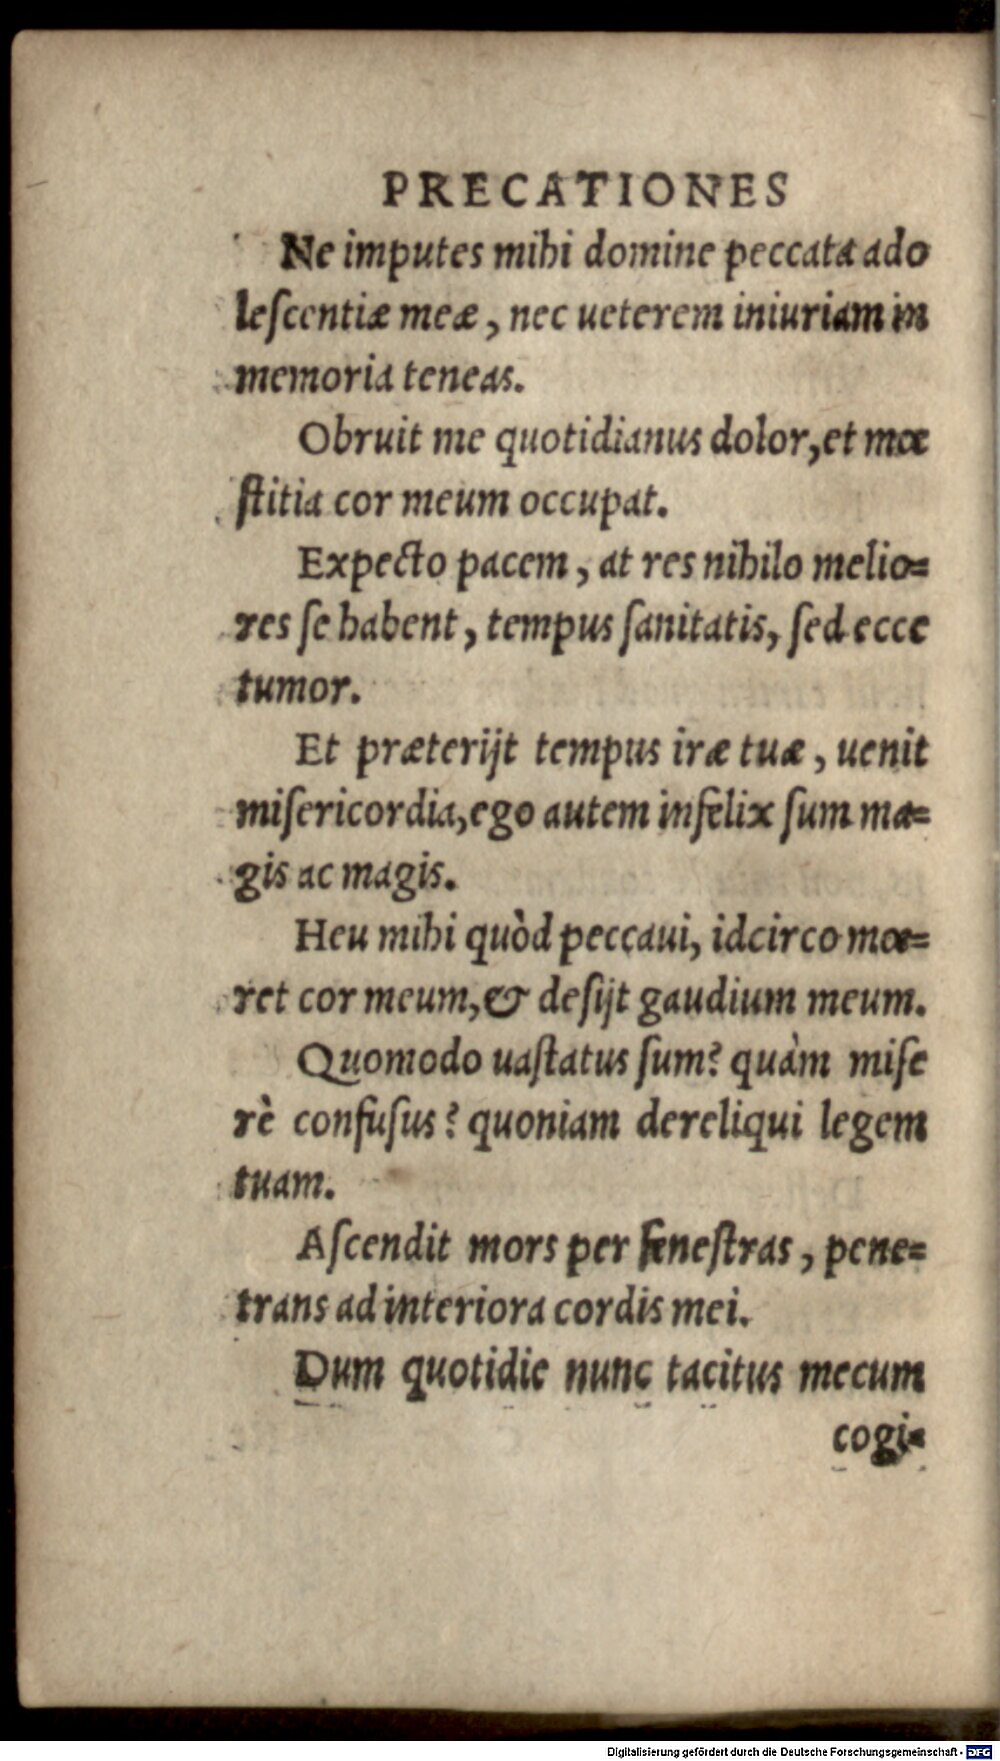 PRECATIONES
Ne imputes mihi domine peccata ado
leſcentiæ meæ, nec ueterem iniuriam in
memoria teneas.
Obruit me quotidianus dolor, et mœ
ſtitia cor meum occupat.
Expecto pacem, at res nihilo melio=
res ſe habent, tempus ſanitatis, ſed ecce
tumor.
Et præterijt tempus iræ tuæ, uenit
miſericordia, ego autem infelix ſum ma=
gis ac magis.
Heu mihi quòd peccaui, idcirco mœ=
ret cor meum, & deſijt gaudium meum.
Quomodo uaſtatus ſum? quàm miſe
rè confuſus? quoniam dereliqui legem
tuam.
Aſcendit mors per feneſtras, pene=
trans ad interiora cordis mei.
Dum quotidie nunc tacitus mecum
cogi=
Digitalisierung gefördert durch die Deutsche Forschungsgemeinschaft - DFG